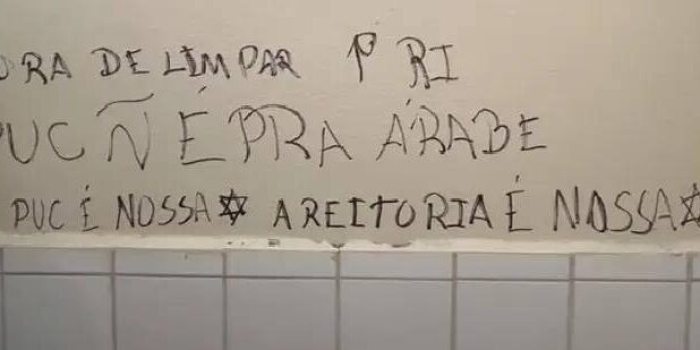 ORA DE LIMPAR 1º RI
PUC Ñ É PRA ÁRABE
PUC É NOSSA ✡ A REITORIA É NOSSA ✡